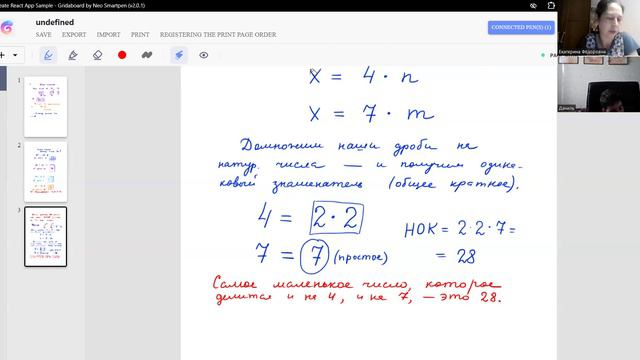 eate React App Sample - Gridaboard by Neo Smartpen (v2.0.1)
undefined
SAVE EXPORT IMPORT PRINT REGISTERING THE PRINT PAGE ORDER
CONNECTED PEN(S) (1)
Екатерина Фёдоровна
Даниль
1
2
3
x = 4 · n
x = 7 · m
Домножим наши дроби на
натур. числа — и получим одина-
ковый знаменатель (общее кратное).
4 = 2 · 2
7 = 7 (простое)
НОК = 2 · 2 · 7 =
= 28
Самое маленькое число, которое
делится и на 4, и на 7, — это 28.